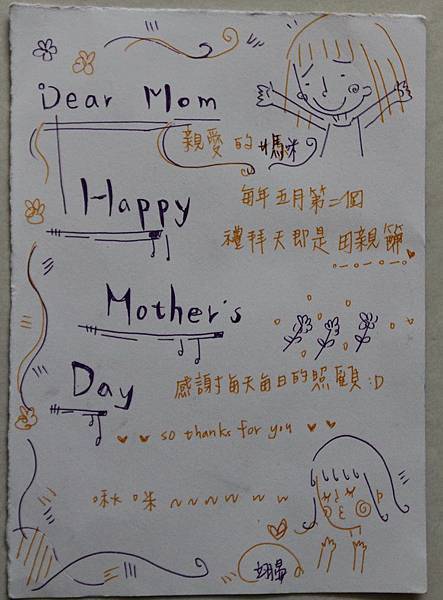 Dear Mom
親愛的媽咪
Happy
每年五月第二個
禮拜天即是母親節
Mother's
Day
感謝每天每日的照顧 :D
so thanks for you
啾咪 ~~~~~ ~ ~